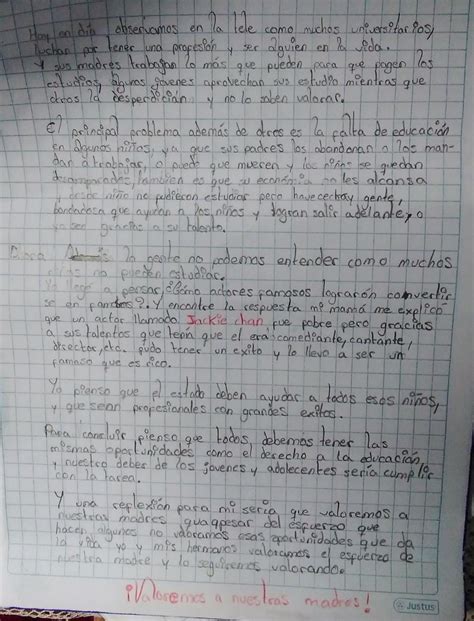 Hoy en día observamos en la tele como muchos universitarios,
luchan por tener una profesión y ser alguien en la vida.
Y sus madres trabajan lo más que pueden para que pagen los
estudios, algunos jovenes aprovechan sus estudio mientras que
otros la desperdician y no lo saben valorar.
El principal problema además de otros es la falta de educación
en algunos niños, ya que sus padres los abandonan o los man-
dan a trabajar, o puede que mueren y los niños se quedan
desamparados, tambien es que su economía no les alcansa
y niño no pudieron estudiar pero have gente,
bondadosa que ayudan a los niños y logran salir adelante, o
ya sea gracias a su talento.
Para la gente no podemos entender como muchos
niños no pueden estudiar.
Yo llegé a pensar, ¿Cómo actores famosos lograrón convertir
se en ?. Y encontre la respuesta mi mamá me explicó
que un actor llamado Jackie chan, fue pobre pero gracias
a sus talentos que tenía que el era: comediante, cantante,
director, etc. pudo tener un exito y lo llevo a ser un
famoso que es rico.
Yo pienso que el estado deben ayudar a todos esos niños,
y que sean profesionales con grandes exitos.
Para concluir pienso que todos, debemos tener las
mismas oportunidades como el derecho a la educación,
y nuestro deber de los jovenes y adolecentes sería cumplir
con la tarea.
Y una reflexión para mi seria que valoremos a
nuestras madres que apesar del esfuerzo que
hacen, algunos no valoramos esas oportunidades que da
la vida yo y mis hermanos valoramos el esfuerzo de
nuestra madre y lo seguiremos valorando.
¡Valoremos a nuestras madres!
JUSTUS